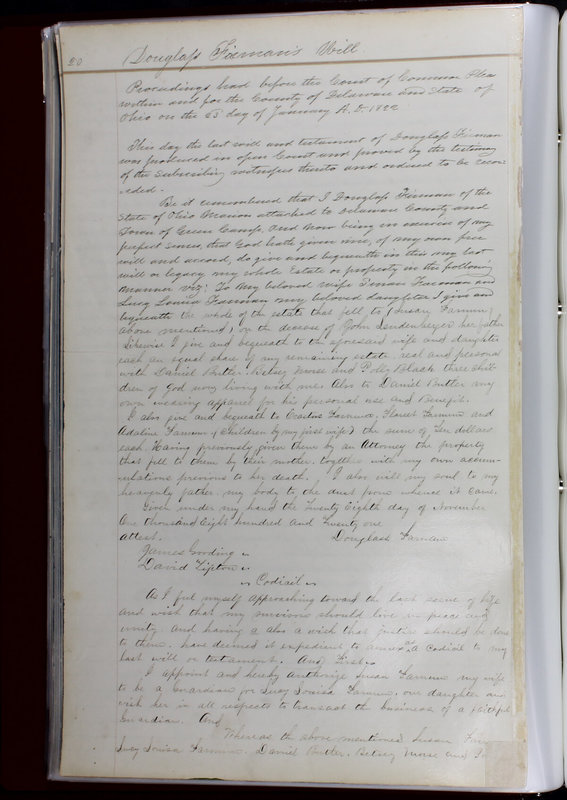 20 Douglass Firman's Will
Proceedings had before the Court of Common Pleas
within and for the County of Delaware and State of
Ohio on the 23 day of January A.D. 1822
This day the last will and testament of Douglass Firman
was produced in open Court and proved by the testimony
of the Subscribing witnesses thereto and ordered to be recor-
-ded.
Be it remembered that I Douglass Firman of the
State of Ohio Marion attached to Delaware County and
Town of Green Camp, and now being in exercise of my
perfect senses, that God hath given me, of my own free
will and accord, do give and bequeath in this my last
will or legacy my whole Estate or property in the following
manner viz: To my beloved wife Susan Farman and
Lucy Louisa Farnum my beloved daughter I give and
bequeath the whole of the estate that fell to (Susan Farnum
above mentioned) on the decease of John her father
Likewise I give and bequeath to the aforesaid wife and daughter
each an equal share of my remaining estate, real and personal
with Daniel Butler, Betsey Morse and Polly Black three chil-
dren of God now living with me. Also to Daniel Butler my
own wearing apparel for his personal use and Benefit.
I also give and bequeath to Erastus Farnum, Farnum and
Adaline Farnum (Children by my first wife) the sum of Ten dollars
each. Having previously given them by an Attorney the property
that fell to them by their mother, together with my own accum-
-ulations previous to her death. I also will my soul to my
heavenly father, my body to the dust from whence it came.
Given under my hand the Twenty Eighth day of November
One thousand Eight hundred and Twenty one
attest. Douglass Farnum
James Gooding
David Tipton
Codicil
As I feel myself approaching toward the last scene of life
and wish that my survivors should live in peace and
unity. And having a also a wish that justice should be done
to them. have deemed it expedient to annex a Codicil to my
last will or testament. And First.
I appoint and hereby authorize Susan Farnum my wife
to be a Guardian for Lucy Louisa Farnum, our daughter and
wish her in all respects to transact the business of a faithful
Guardian. And
Whereas the above mentioned Susan
Lucy Louisa Farnum, Daniel Butler, Betsey Morse and